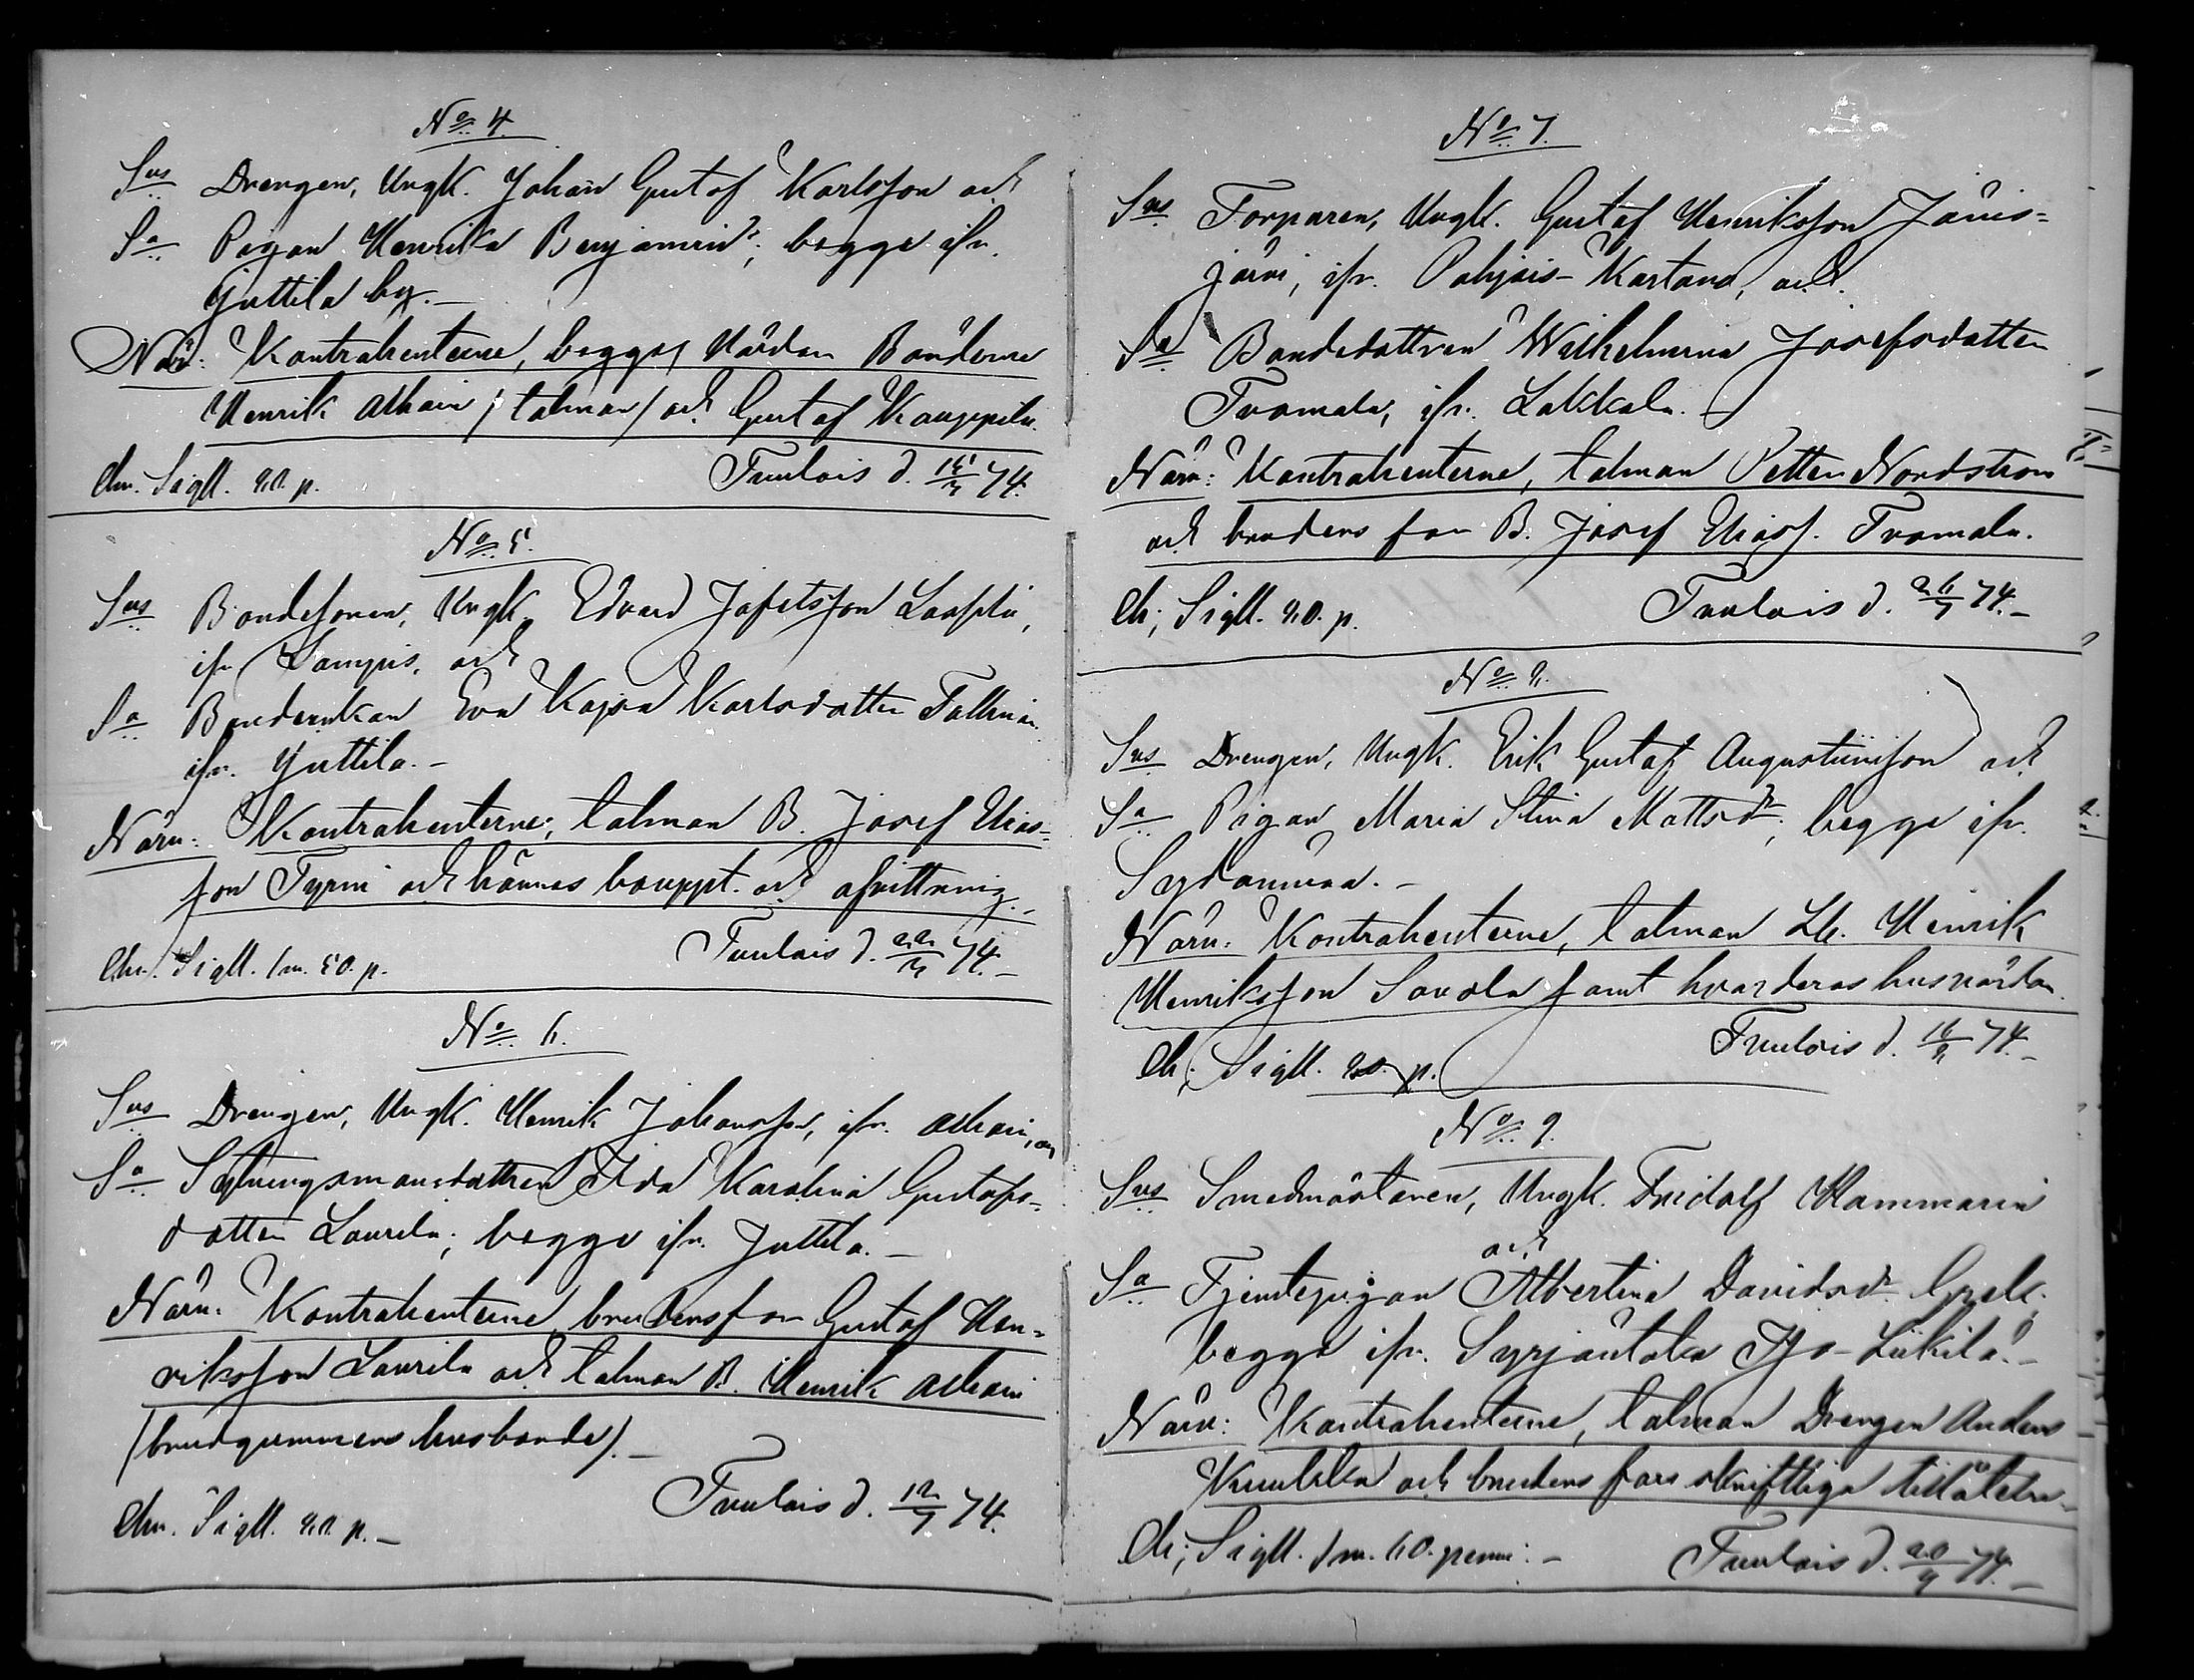 No 4.
Sus Drengen, Ungk. Johan Gustaf Karlsson och
Sa Pigan Henrika Benjamind:r, begge ifr.
Juttila by.-
Närv: Kontrahenterne, begges Vårdar Bönderne
Henrik Alhain /talman/ och Gustaf Kauppila.
Ch. Sigll. 80. p. Tuulois d. 15/3 74.
No 5.
Sus Bondesonen, Ungk. Edvard Jafetsson
ifr. Lampis, och
Sa Bondeenkan Eva Kajsa Karlsdotter Tallman
ifr. Juttila.-
Närv: Kontrahenterne, talman B. Josef Elias-
son Tyrni och hännes bouppt. och afvittring.-
Ch. Sigll. 1 m. 50. p. Tuulois d. 22/3 74.-
No 6.
Sus Drengen, Ungk. Henrik Johansson, ifr. Alhain, och
Sa Sexmansdottren Ida Karolina Gustafs-
dotter Laurila; begge ifr. Juttila.-
Närv: Kontrahenterne, brudens far Gustaf Hen-
riksson Laurila och talman B. Henrik Alhain
/brudgummens husbonde/.-
Ch. Sigll. 80. p.- Tuulois d. 12/7 74.
No 7.
Sus Torparen, Ungk. Gustaf Henriksson Jänis-
järvi, ifr. Pohjois-Kartano, och
Sa Bondedottren Wilhelmina Josefsdotter
Tuomala, ifr. Lakkala.-
Närv: Kontrahenterne, talman Petter Nordström
och brudens far B. Josef Eliass. Tuomala.
Ch; Sigll. 80. p. Tuulois d. 26/7 74.-
No 8.
Sus Drengen, Ungk. Erik Gustaf Augustinsson och
Sa Pigan Maria Stina Mattsdr, begge ifr.
Sydänmaa.-
Närv: Kontrahenterne, talman Lb. Henrik
Henriksson Savola samt hvarderas husvärdar.
Ch; Sigll. 80. p. Tuulois d. 16/8 74.-
No 9.
Sus Smedmästaren, Ungk. Fridolf Hammarin
och
Sa Tjenstepigan Albertina Davidsdr
begge ifr. Syrjäntaka Iso-Liikilä.-
Närv: Kontrahenterne, talman Drengen Anders
och brudens fars skriftliga tillåtelse.-
Ch; Sigll. 1 m. 60. penni.- Tuulois d. 20/9 74.-